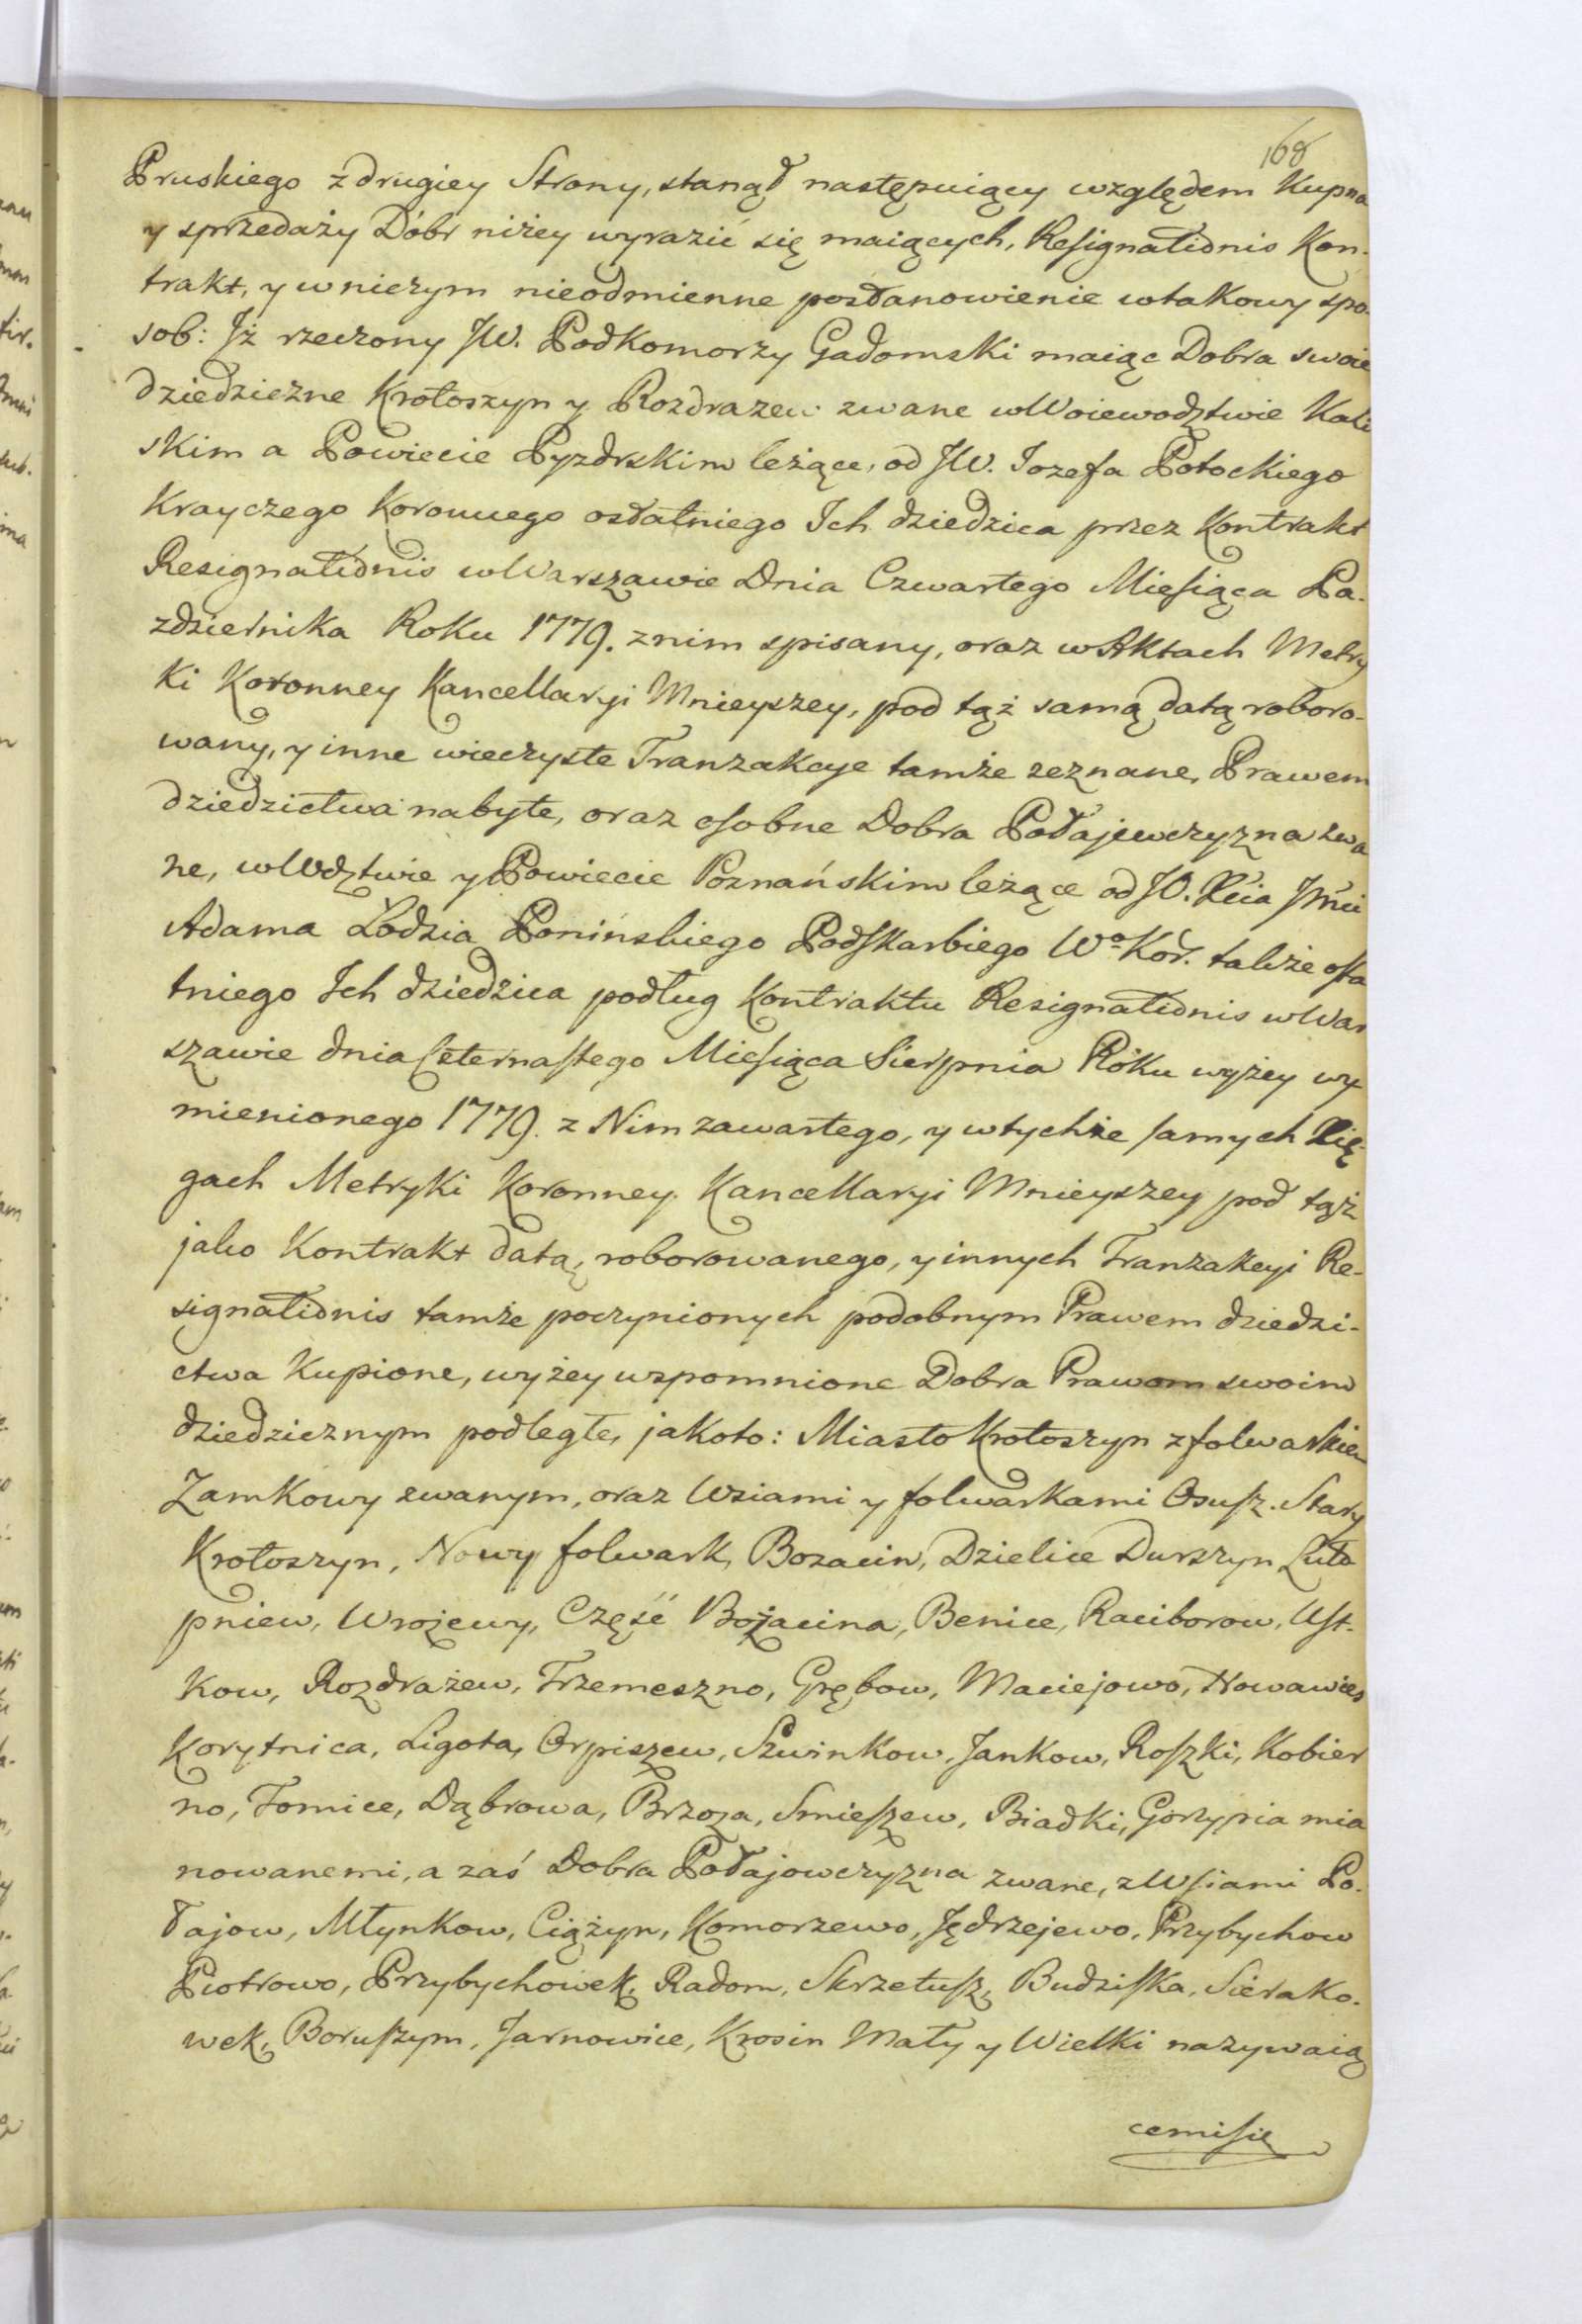 168
Pruskiego z drugiey Strony, stanął następuiący względem Kupna
y sprzedaży Dóbr niżey wyrazić się maiących, Resignationis Kon-
trakt, y w niczym nieodmienne postanowienie w takowy spo-
sob: Jż rzeczony JW. Podkomorzy Gadomski maiąc Dobra swoie
dziedziczne Krotoszyn y Rozdrazew zwane w Woiewodztwie Kali
skim a Powiecie Pyzdrskim leżące, od JW. Jozefa Potockiego
Krayczego Koronnego ostatniego Ich dziedzica przez Kontrakt
Resignationis w Warszawie Dnia Czwartego Miesiąca Pa-
zdziernika Roku 1779. z nim spisany, oraz w Aktach Metry
ki Koronney Kancellaryi Mnieyszey, pod tąż samą datą roboro-
wany, y inne wieczyste Tranzakcye tamże zeznane, Prawem
dziedzictwa nabyte, oraz osobne Dobra Połajewczyzna zwa
ne, w Wdztwie y Powiecie Poznańskim leżące od JO. Xcia Jmci
Adama Łodzia Ponińskiego Podskarbiego Wo Kor. także osta
tniego Ich dziedzica podług Kontraktu Resignationis w War
szawie dnia Czternastego Miesiąca Sierpnia Roku wyżey wy
mienionego 1779. z Nim zawartego, y w tychże samych Xię-
gach Metryki Koronney Kancellaryi Mnieyszey pod tąż
jako Kontrakt datą, roborowanego, y innych Tranzakcyi Re-
signationis tamże poczynionych podobnym Prawem dziedzi-
ctwa Kupione, wyżey wspomnione Dobra Prawom swoim
dziedzicznym podległe, jakoto: Miasto Krotoszyn z folwarkiem
Zamkowy zwanym, oraz Wsiami y folwarkami Osusz. Stary
Krotoszyn, Nowy folwark, Bozacin, Dzielice Durszyn Luto
pniew, Wrozewy, Część Bożacina, Benice, Raciborow, Ust-
kow, Rozdrażew, Trzemeszno, Grębow, Maciejowo, Nowawies
Korytnica, Ligota, Orpiszew, Szwinkow, Jankow, Roszki, Kobier
no, Tomice, Dąbrowa, Brzoza, Smieszew, Biadki, Gorzypia mia
nowanemi, a zaś Dobra Połajowczyzna zwane, z Wsiami Po-
łajow, Młynkow, Ciążyn, Komorzewo, Jędrzejewo, Przybychow
Piotrowo, Przybychowek, Radom, Skrzetusz, Budziska, Sierako-
wek, Boruszym, Jarnowice, Krosin Mały y Wielki nazywaią
cemi się